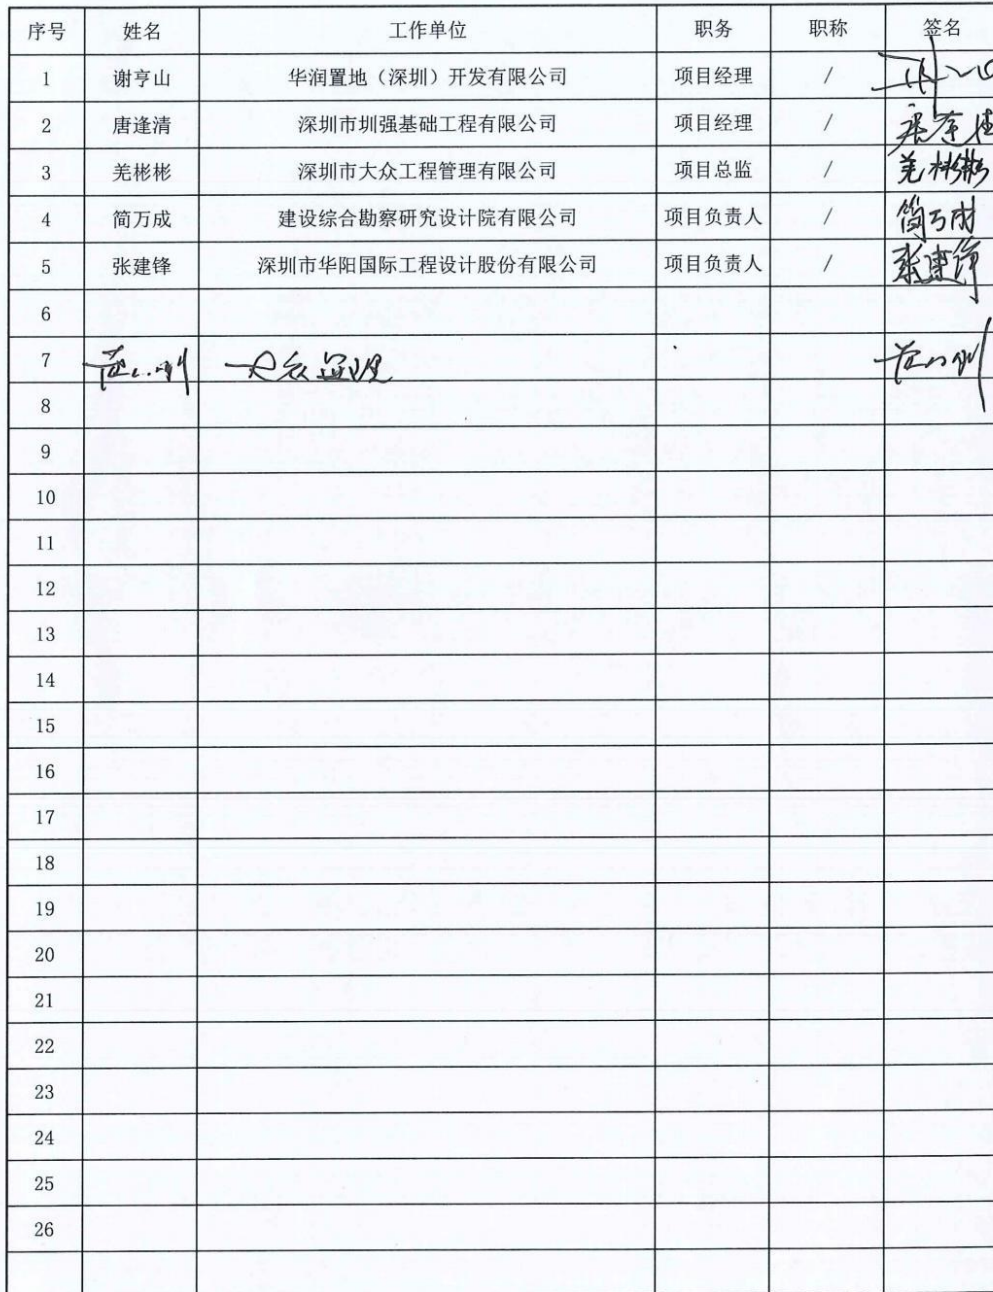 序号 姓名 工作单位 职务 职称 签名
1 谢亨山 华润置地（深圳）开发有限公司 项目经理 /
2 唐逢清 深圳市圳强基础工程有限公司 项目经理 /
3 羌彬彬 深圳市大众工程管理有限公司 项目总监 / 羌彬彬
4 简万成 建设综合勘察研究设计院有限公司 项目负责人 / 简万成
5 张建锋 深圳市华阳国际工程设计股份有限公司 项目负责人 / 张建锋
6
7 大众监理
8
9
10
11
12
13
14
15
16
17
18
19
20
21
22
23
24
25
26